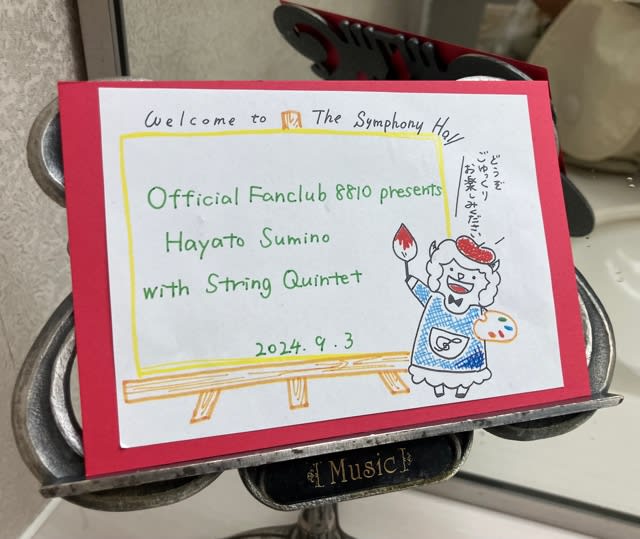 Welcome to The Symphony Hall
どうぞ
ごゆっくり
お楽しみください
Official Fanclub 8810 presents
Hayato Sumino
with String Quintet
2024.9.3
Music